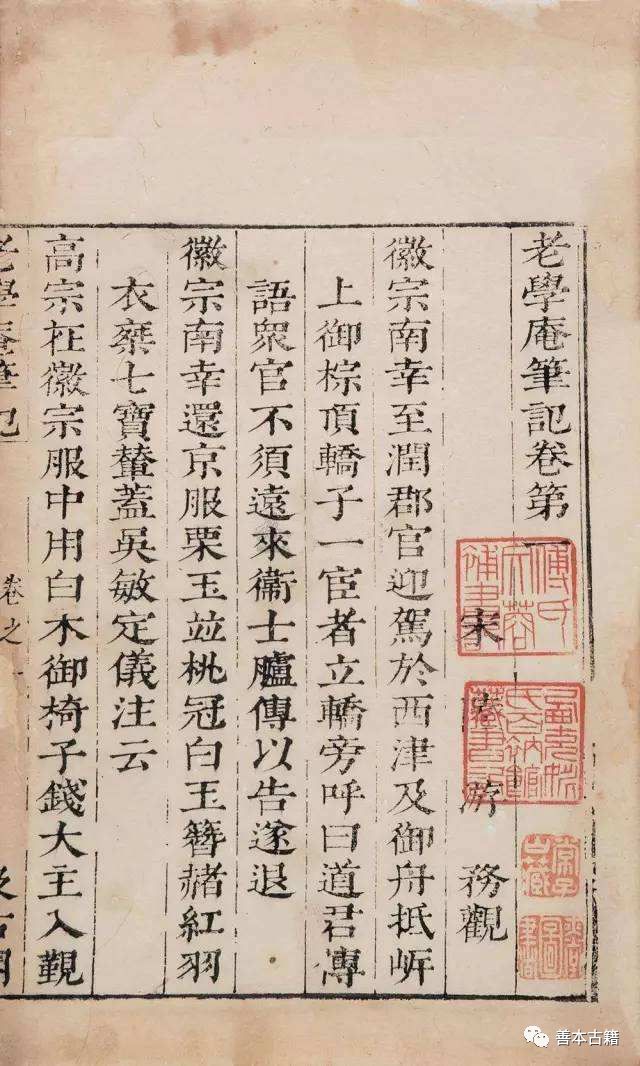 老學庵筆記卷第一
宋 陸游 務觀
徽宗南幸至潤郡官迎駕於西津及御舟抵岍
上御棕頂轎子一宦者立轎旁呼曰道君傳
語眾官不須遠來衛士臚傳以告遂退
徽宗南幸還京服栗玉並桃冠白玉簪赭紅羽
衣乘七寶輦蓋吳敏定儀注云
高宗在徽宗服中用白木御椅子錢大主入覲
老學庵筆記 卷之一
善本古籍